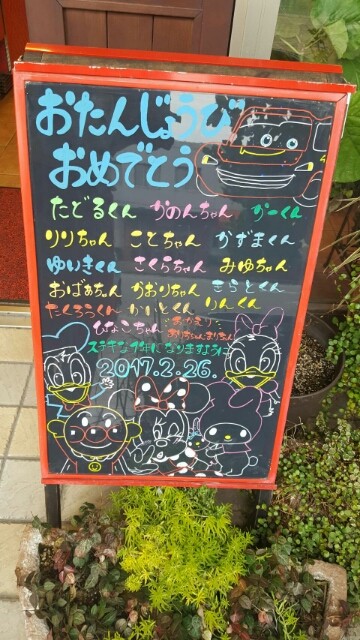 おたんじょうび
おめでとう
たどるくん かのんちゃん かーくん
りりちゃん ことちゃん かずまくん
ゆいきくん さくらちゃん みゆちゃん
おばあちゃん かおりちゃん きらとくん
たくろうくん かいとくん りんくん
ひなこちゃん
ステキな1年になりますように
2017.2.26.